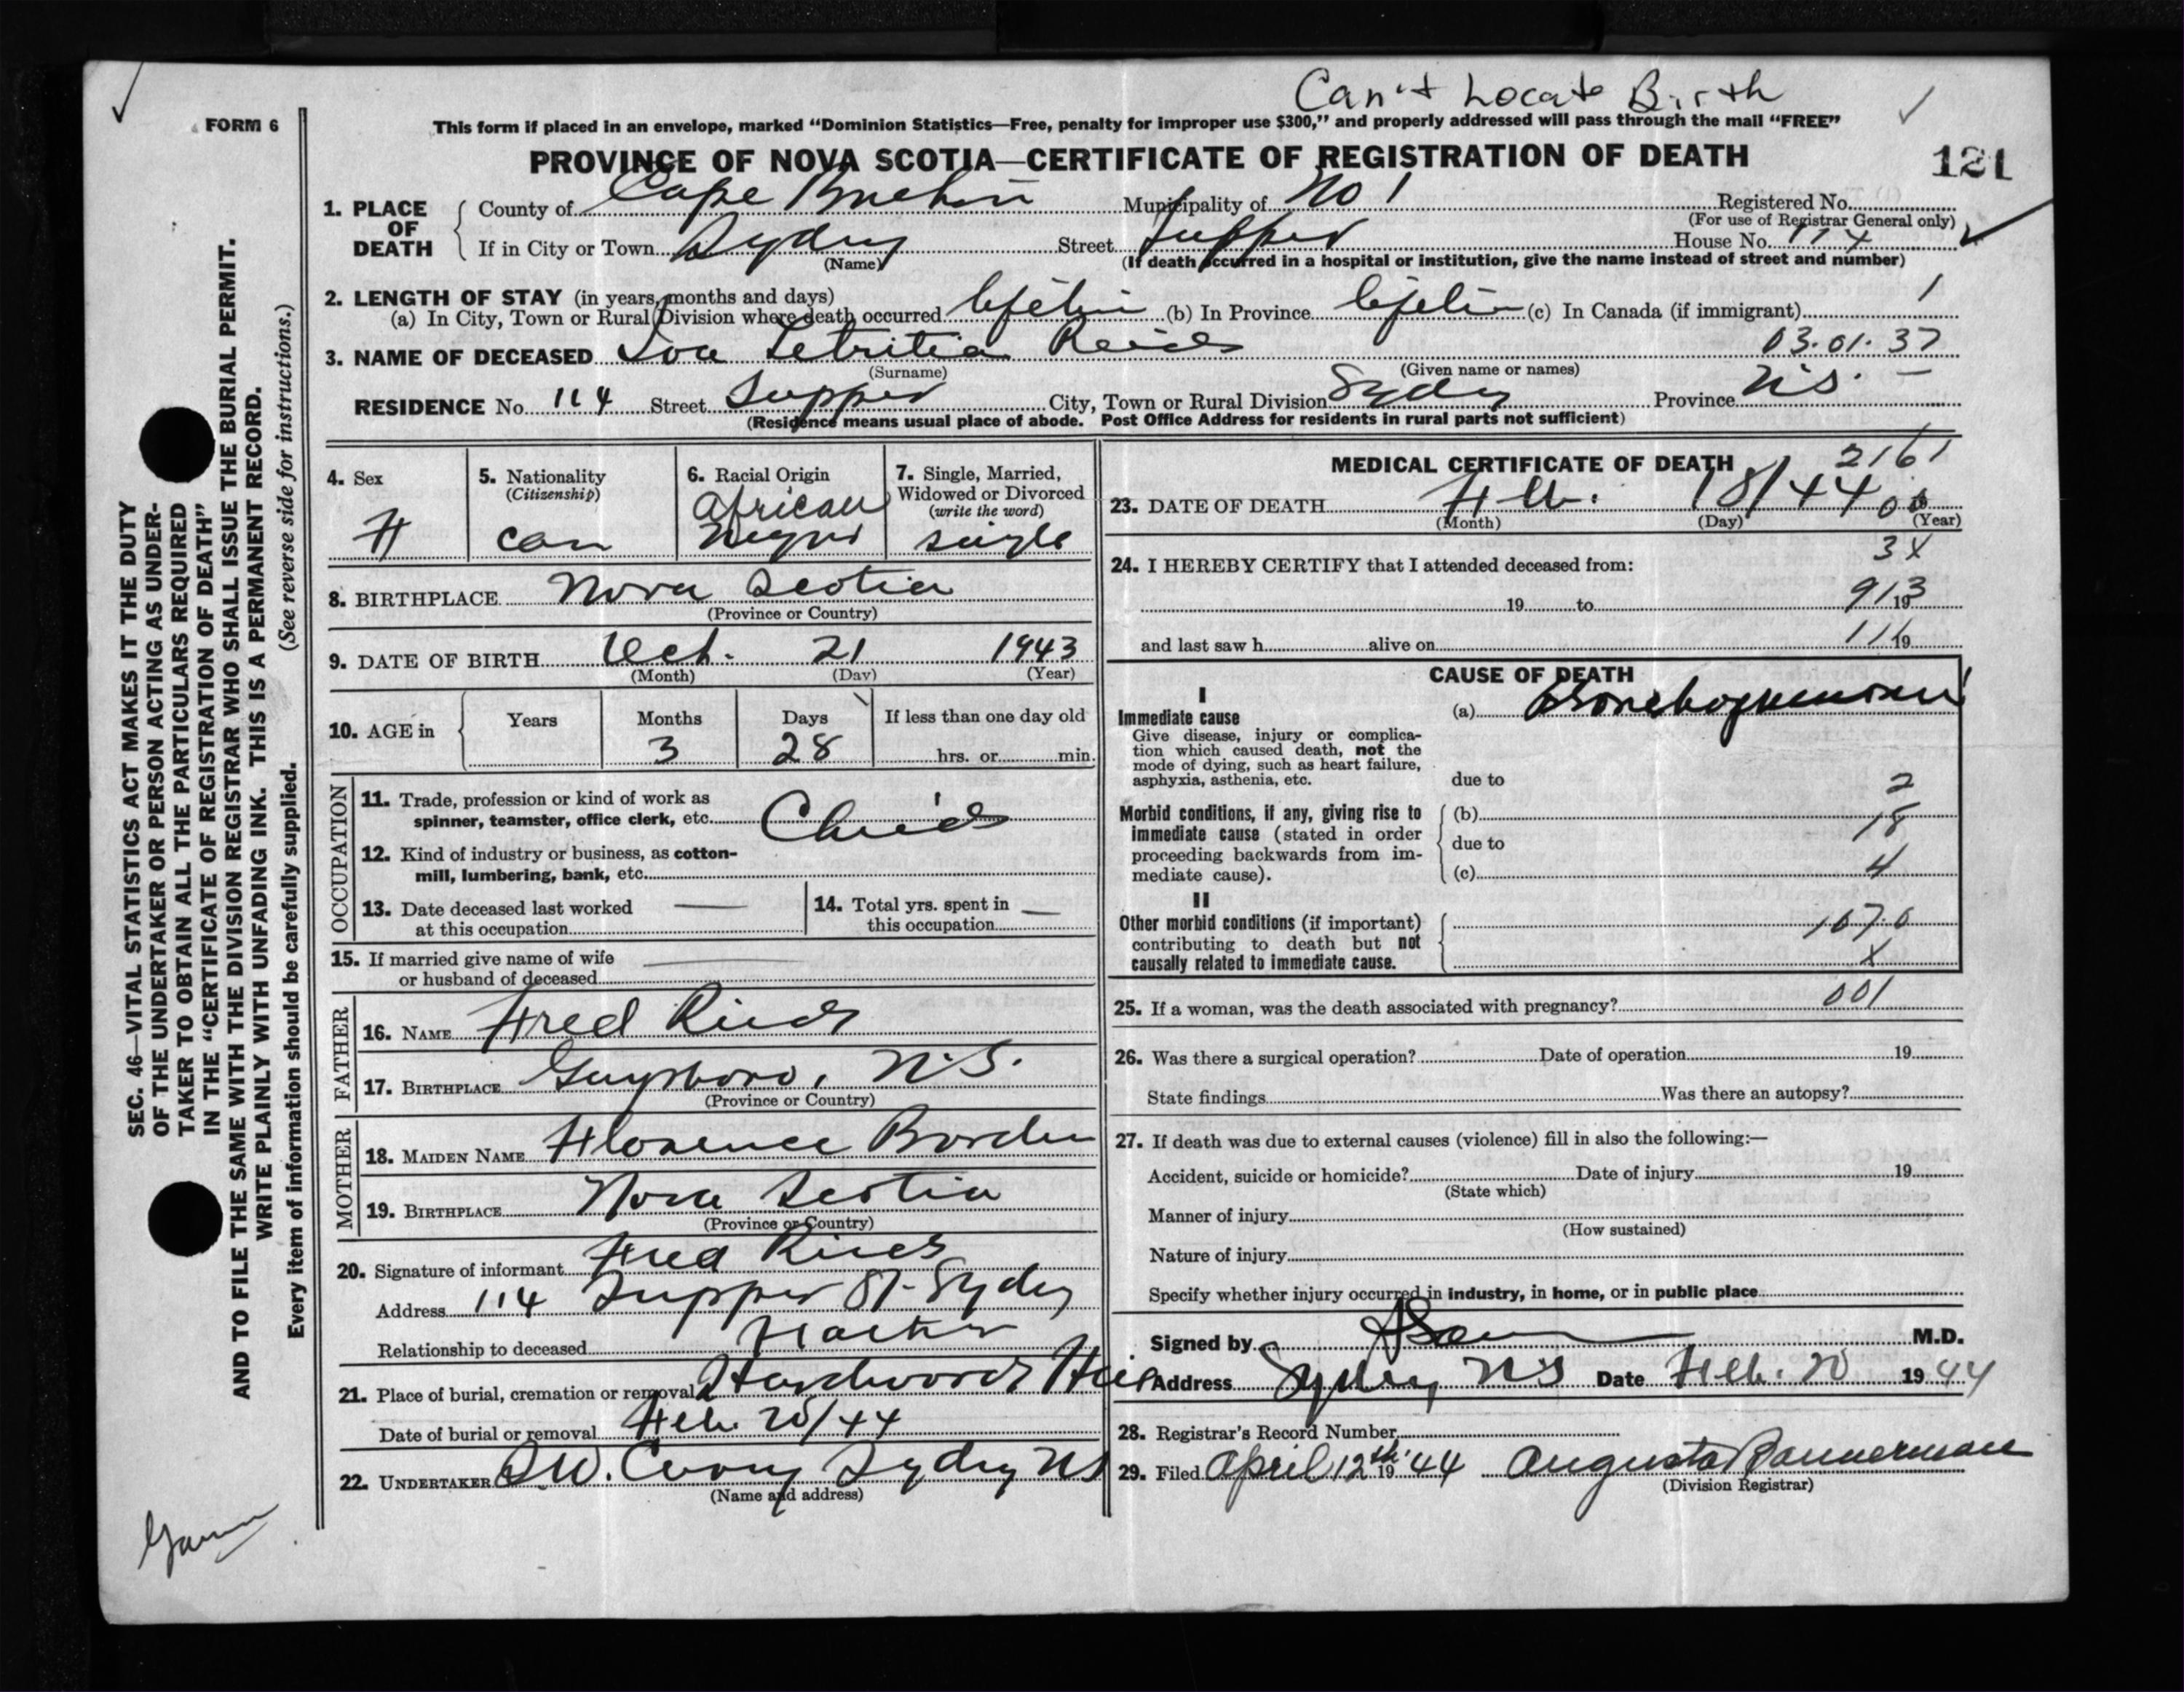 Can't Locate Birth
FORM 6
This form if placed in an envelope, marked "Dominion Statistics—Free, penalty for improper use $300," and properly addressed will pass through the mail "FREE"
PROVINCE OF NOVA SCOTIA—CERTIFICATE OF REGISTRATION OF DEATH
121
1. PLACE OF DEATH
County of Cape Breton Municipality of No 1 Registered No.
(For use of Registrar General only)
If in City or Town Sydney Street Tupper House No. 114
(Name) (If death occurred in a hospital or institution, give the name instead of street and number)
2. LENGTH OF STAY (in years, months and days)
(a) In City, Town or Rural Division where death occurred Lifetime (b) In Province Lifetime (c) In Canada (if immigrant) 1
3. NAME OF DECEASED Letritia 03.01.37
(Surname) (Given name or names)
RESIDENCE No. 114 Street Tupper City, Town or Rural Division Sydney Province N.S. —
(Residence means usual place of abode. Post Office Address for residents in rural parts not sufficient)
4. Sex
F
5. Nationality
(Citizenship)
Can
6. Racial Origin
African
Negro
7. Single, Married,
Widowed or Divorced
(write the word)
single
8. BIRTHPLACE Nova Scotia
(Province or Country)
9. DATE OF BIRTH Oct. 21 1943
(Month) (Day) (Year)
10. AGE in
Years Months Days If less than one day old
3 28 hrs. or min.
OCCUPATION
11. Trade, profession or kind of work as
spinner, teamster, office clerk, etc. Child
12. Kind of industry or business, as cotton-
mill, lumbering, bank, etc.
13. Date deceased last worked —
at this occupation
14. Total yrs. spent in —
this occupation
15. If married give name of wife —
or husband of deceased
FATHER
16. NAME Fred
17. BIRTHPLACE Guysboro, N.S.
(Province or Country)
MOTHER
18. MAIDEN NAME Florence Borden
19. BIRTHPLACE Nova Scotia
(Province or Country)
20. Signature of informant Fred
Address 114 Tupper St. Sydney
Relationship to deceased Father
21. Place of burial, cremation or removal Hardwood Hill
Date of burial or removal Feb. 20/44
22. UNDERTAKER Sydney NS
(Name and address)
MEDICAL CERTIFICATE OF DEATH
2161
23. DATE OF DEATH Feb. 18/44
(Month) (Day) (Year)
3X
24. I HEREBY CERTIFY that I attended deceased from:
19 to 19
913
and last saw h alive on 19
111
CAUSE OF DEATH
I
Immediate cause
Give disease, injury or complica-
tion which caused death, not the
mode of dying, such as heart failure,
asphyxia, asthenia, etc.
(a) Bronchopneumonia
due to
2
Morbid conditions, if any, giving rise to
immediate cause (stated in order
proceeding backwards from im-
mediate cause).
(b)
18
due to
(c)
4
II
Other morbid conditions (if important)
contributing to death but not
causally related to immediate cause.
107.0
X
25. If a woman, was the death associated with pregnancy? 001
26. Was there a surgical operation? Date of operation 19
State findings Was there an autopsy?
27. If death was due to external causes (violence) fill in also the following:—
Accident, suicide or homicide? Date of injury 19
(State which)
Manner of injury
(How sustained)
Nature of injury
Specify whether injury occurred in industry, in home, or in public place
Signed by M.D.
Address Sydney NS Date Feb. 20 1944
28. Registrar's Record Number
29. Filed April 12th 19 44 Augusta Bannerman
(Division Registrar)
SEC. 46—VITAL STATISTICS ACT MAKES IT THE DUTY
OF THE UNDERTAKER OR PERSON ACTING AS UNDER-
TAKER TO OBTAIN ALL THE PARTICULARS REQUIRED
IN THE "CERTIFICATE OF REGISTRATION OF DEATH"
AND TO FILE THE SAME WITH THE DIVISION REGISTRAR WHO SHALL ISSUE THE BURIAL PERMIT.
WRITE PLAINLY WITH UNFADING INK. THIS IS A PERMANENT RECORD.
Every item of information should be carefully supplied. (See reverse side for instructions.)